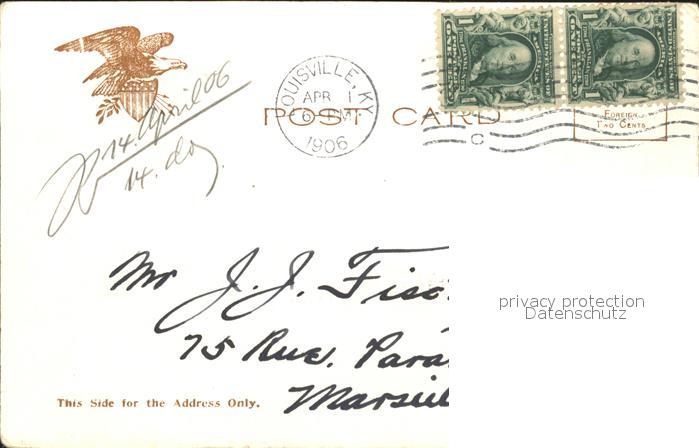 14 April 06
14. do
LOUISVILLE, KY.
APR 1
6 PM
1906
POST CARD
FOREIGN
TWO CENTS.
C
Mr J. J. Fisc
75 Rue. Para
Marseil
privacy protection
Datenschutz
This Side for the Address Only.